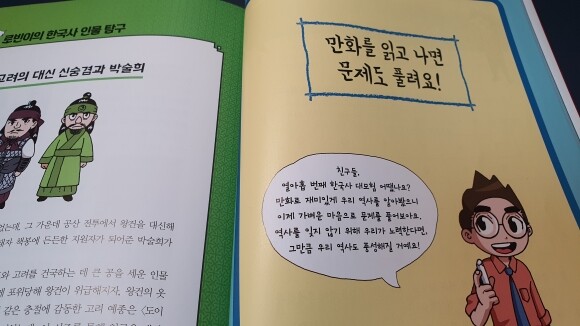 로빈이의 한국사 인물 탐구
고려의 대신 신숭겸과 박술희
는데, 그 가운데 공산 전투에서 왕건을 대신해
해자 해봉에 든든한 지원자가 되어준 박술희가
와 고려를 건국하는 데 큰 공을 세운 인물
에 포위당해 왕건이 위급해지자, 왕건의 옷
같은 충절에 감동한 고려 예종은 〈도이
만화를 읽고 나면
문제도 풀려요!
친구들,
열아홉 번째 한국사 대모험 어땠나요?
만화로 재미있게 우리 역사를 알아봤으니
이제 가벼운 마음으로 문제를 풀어보아요.
역사를 잊지 않기 위해 우리가 노력한다면,
그만큼 우리 역사도 풍성해질 거예요!